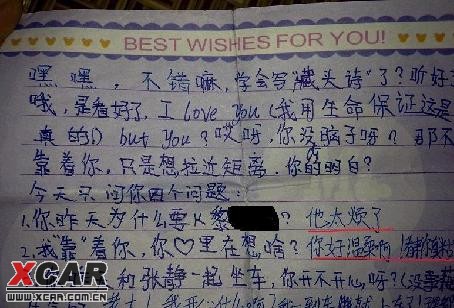 BEST WISHES FOR YOU!
嘿嘿,不错嘛,学会写"藏头诗"了?听好了
哦,是看好了,I love you(我用生命保证这是
真的!) but you?哎呀,你没脑子呀?那不
靠着你,只是想拉近距离.你的明白?
今天只问你四个问题:
1.你昨天为什么要K黎 ?他太烦了
2.我"靠"着你,你♡里在想,啥?你好温柔啊!
和张静一起坐车,你开不开心,呀?(没事
XCAR
WWW.XCAR.COM.CN